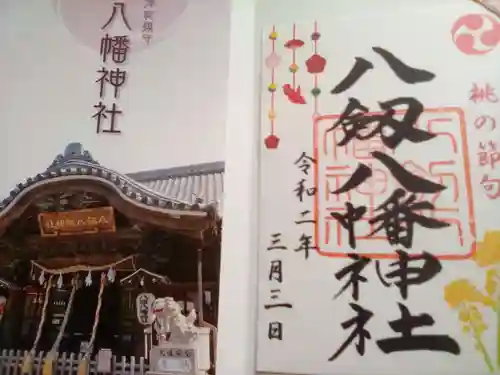 八幡神社
桃の節句
八剱八幡神社
令和二年
三月三日